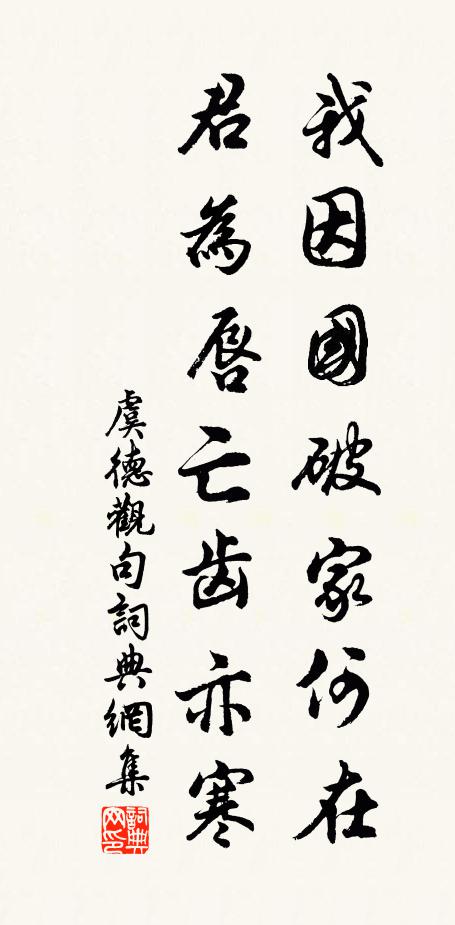 我因國破家何在
君為唇亡齒亦寒
虞德觀句詞典網集
詞典网印